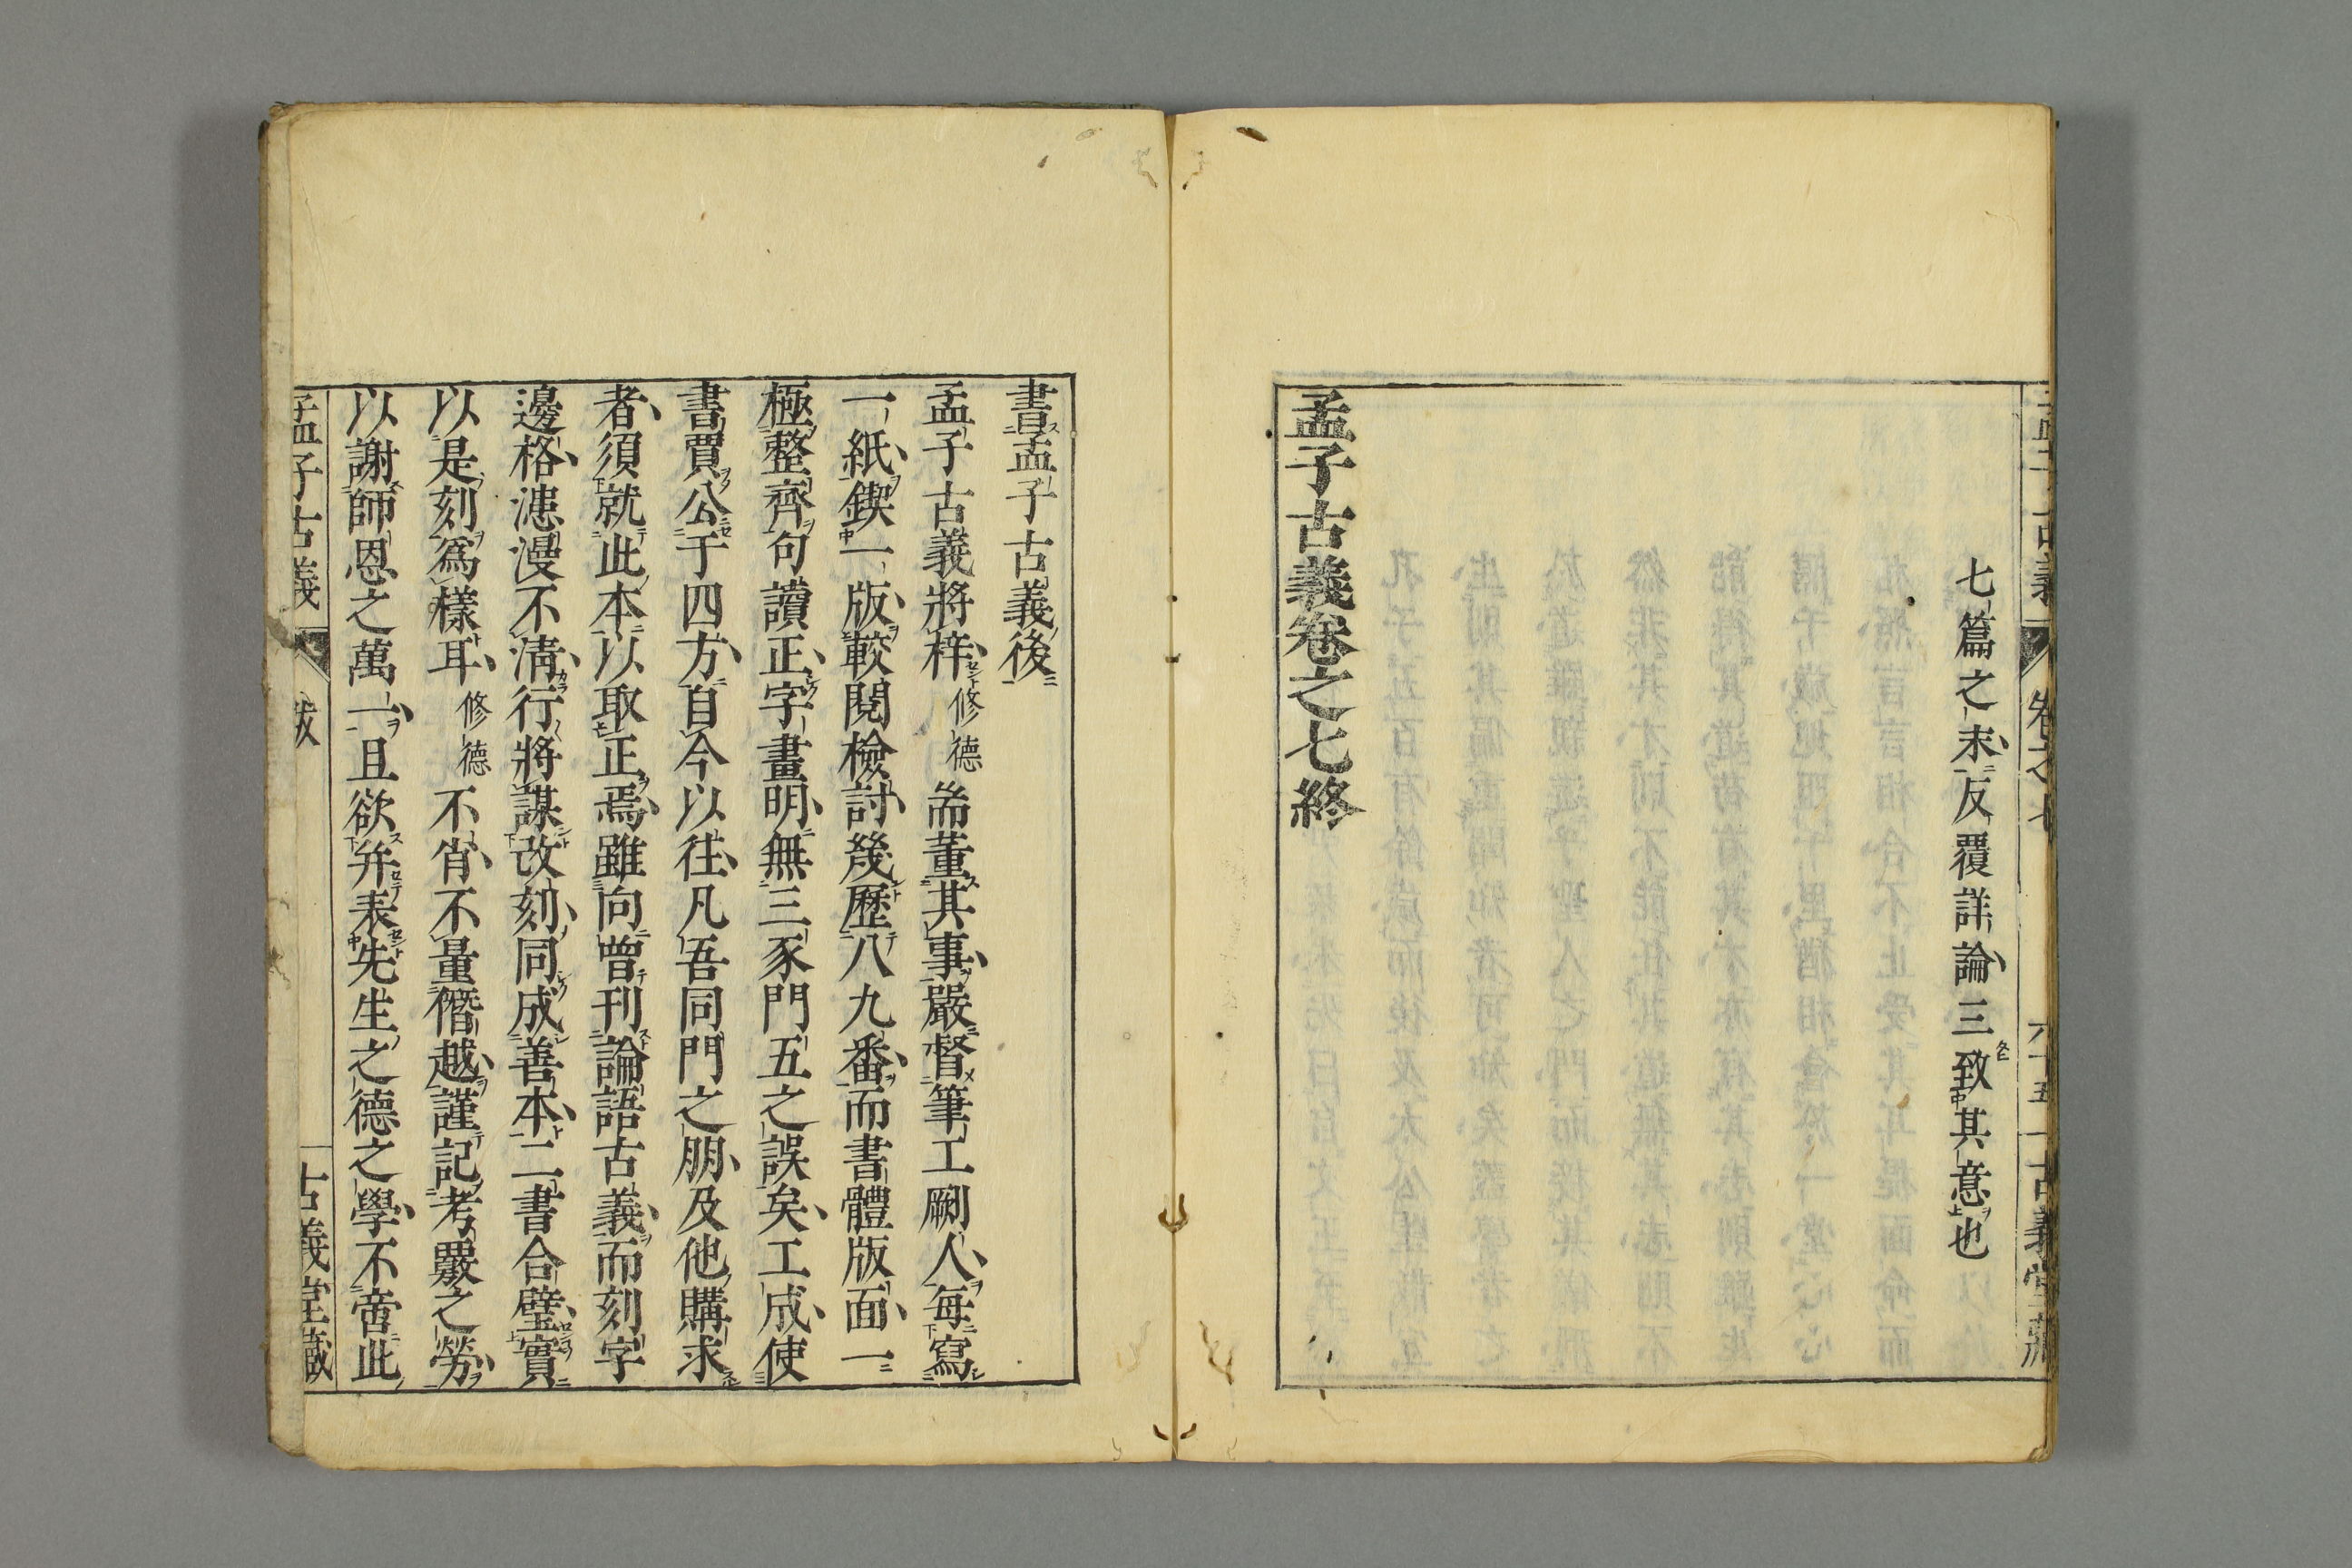 七篇之末反覆詳論三致其意也
孟子古義卷之七終
書孟子古義後
孟子古義將梓修德耑董其事嚴督筆工劂人每寫
一紙鍥一版較閱檢討幾歷八九番而書體版面一
極整齊句讀正字畫明無三豕門五之誤矣工成使
書賈公于四方自今以往凡吾同門之朋及他購求
者須就此本以取正焉雖向曾刊論語古義而刻字
邊格漶漫不淸行將謀改刻同成善本二書合璧實
以是刻爲樣耳修德不肖不量僭越謹記考覈之勞
以謝師恩之萬一且欲弁表先生之德之學不啻此
孟子古義
跋
古義堂藏